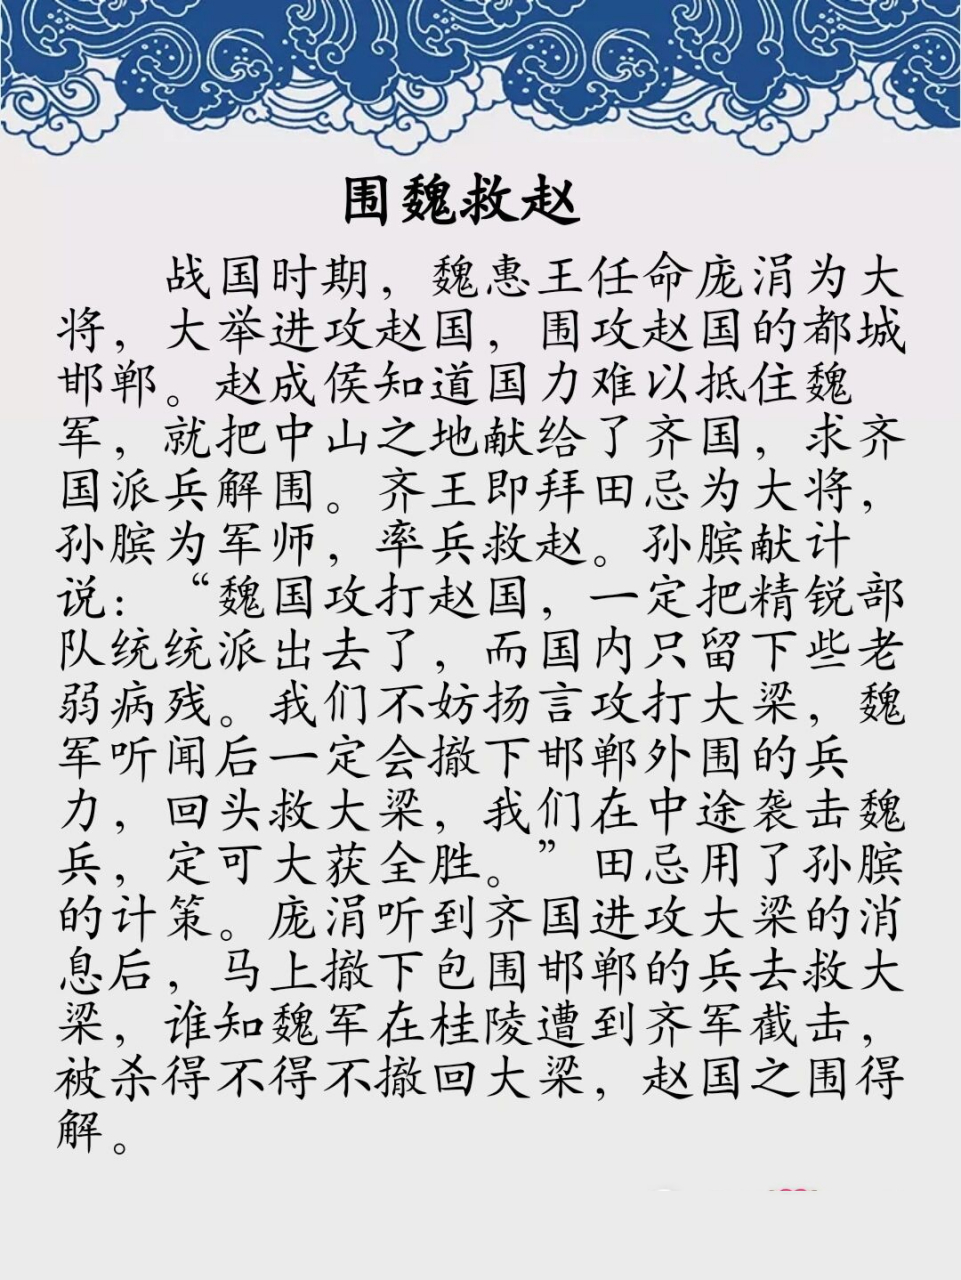 围魏救赵
战国时期，魏惠王任命庞涓为大
将，大举进攻赵国，围攻赵国的都城
邯郸。赵成侯知道国力难以抵住魏
军，就把中山之地献给了齐国，求齐
国派兵解围。齐王即拜田忌为大将，
孙膑为军师，率兵救赵。孙膑献计
说：“魏国攻打赵国，一定把精锐部
队统统派出去了，而国内只留下些老
弱病残。我们不妨扬言攻打大梁，魏
军听闻后一定会撤下邯郸外围的兵
力，回头救大梁，我们在中途袭击魏
兵，定可大获全胜。”田忌用了孙膑
的计策。庞涓听到齐国进攻大梁的消
息后，马上撤下包围邯郸的兵去救大
梁，谁知魏军在桂陵遭到齐军截击，
被杀得不得不撤回大梁，赵国之围得
解。